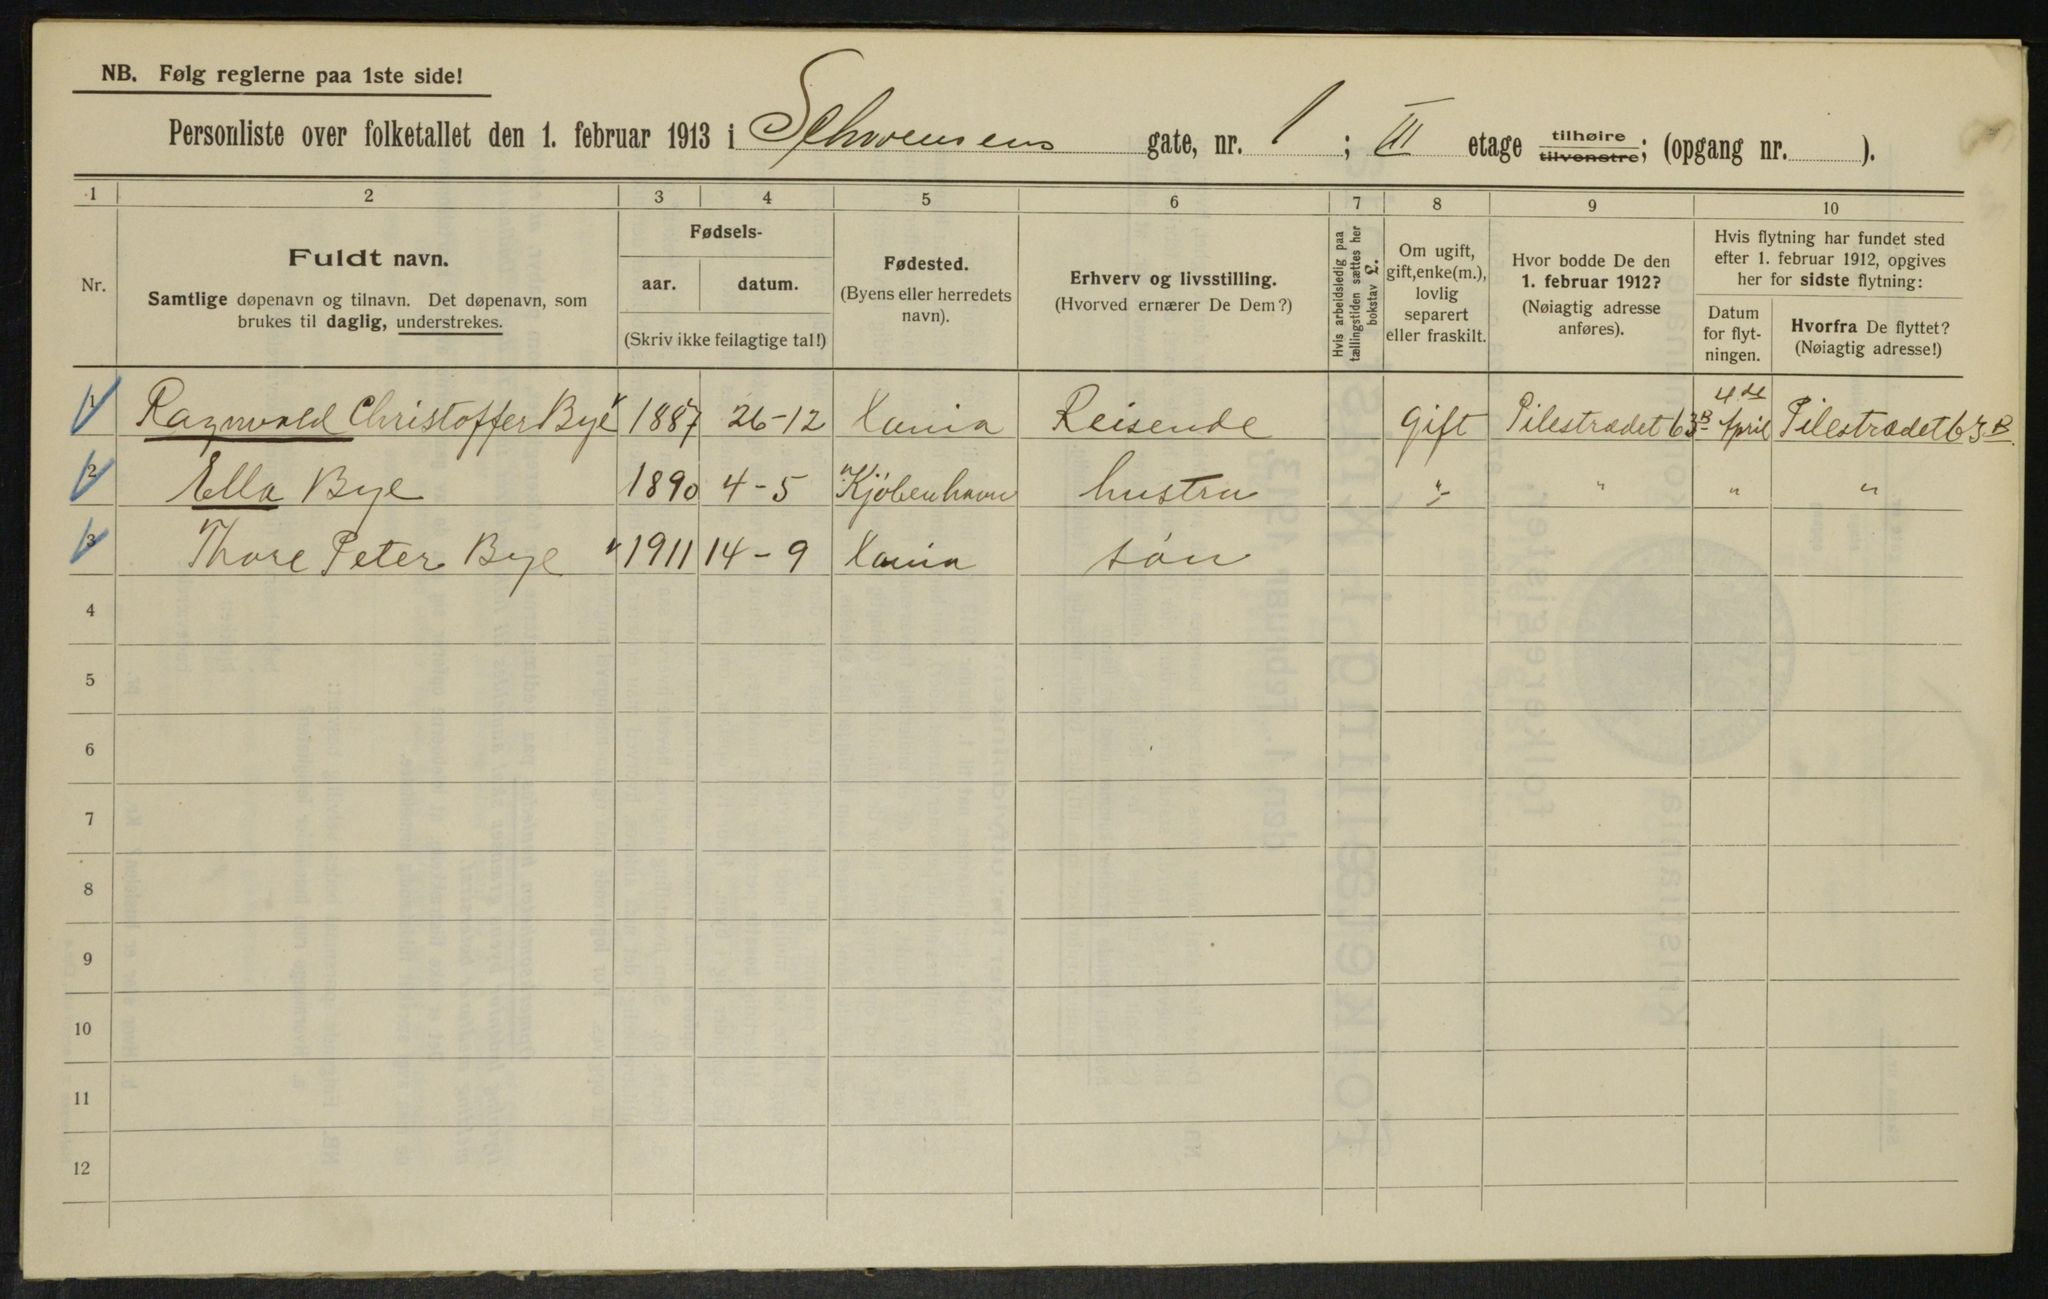 NB. Følg reglerne paa 1ste side!
Personliste over folketallet den 1. februar 1913 i Schwensens gate, nr. 1 ; III etage tilhøire tilvenstre; (opgang nr. ).
1 2 3 4 5 6 7 8 9 10
Nr.
Fuldt navn.
Samtlige døpenavn og tilnavn. Det døpenavn, som
brukes til daglig, understrekes.
Fødsels-
aar. datum.
(Skriv ikke feilagtige tal!)
Fødested.
(Byens eller herredets
navn).
Erhverv og livsstilling.
(Hvorved ernærer De Dem?)
Hvis arbeidsledig paa
tællingstiden sættes her
bokstav L.
Om ugift,
gift, enke(m.),
lovlig
separert
eller fraskilt.
Hvor bodde De den
1. februar 1912?
(Nøiagtig adresse
anføres).
Hvis flytning har fundet sted
efter 1. februar 1912, opgives
her for sidste flytning:
Datum
for flyt-
ningen.
Hvorfra De flyttet?
(Nøiagtig adresse!)
1 Ragnvald Christoffer Bye 1887 26-12 Xania Reisende Gift Pilestrædet 63B 4de April Pilestrædet 63B
2 Ella Bye 1890 4-5 Kjøbenhavn hustru " " " "
3 Thore Peter Bye 1911 14-9 Xania søn
4
5
6
7
8
9
10
11
12